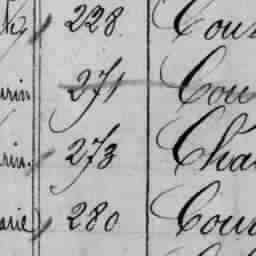 228 Cour
rin 271 Cou
rin 273 Cha
arie 280 Cour